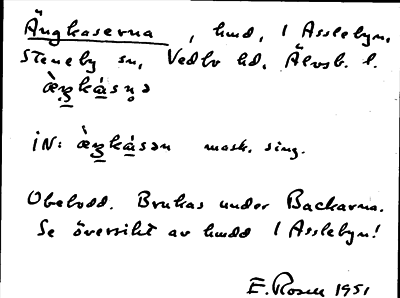 Ängkaserna, hmd, 1 Asslebyn,
Steneby sn, Vedbo hd, Älvsb. l.
æ̀ŋkásn̥ə
iN: æ̀ŋkásən mask. sing.
Obebodd. Brukas under Backarna.
Se översikt av hmdd 1 Asslebyn!
E. Rosell 1951